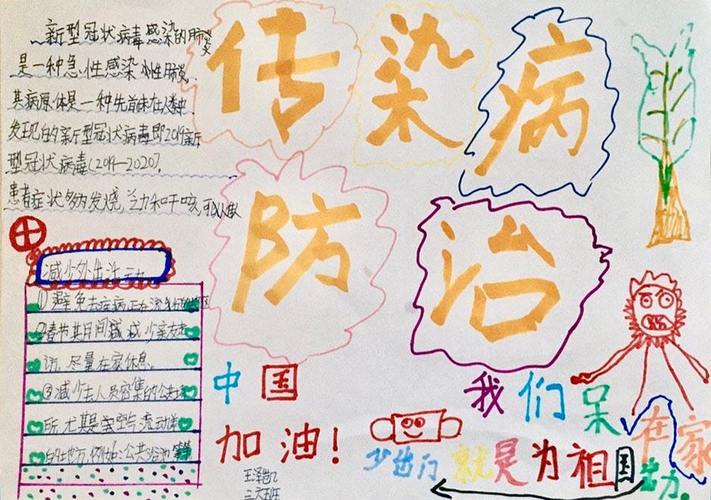 新型冠状病毒感染的肺炎
是一种急性感染性肺炎,
其病原体是一种先前未在人类中
发现的新型冠状病毒即2019新
型冠状病毒(2019-2020).
患者症状多为发烧,乏力和干咳,可以做
传染病
防治
减少外出活动
①避免去疾病正在流行的地区
②春节其日间减 减少亲友走
访,尽量在家休息.
③减少去人员密集的公共场
所尤其是空气流动性
的地方,例如:公共浴池
中国
加油!
我们呆在家
少出门 就是为祖国
王泽凯
三六班